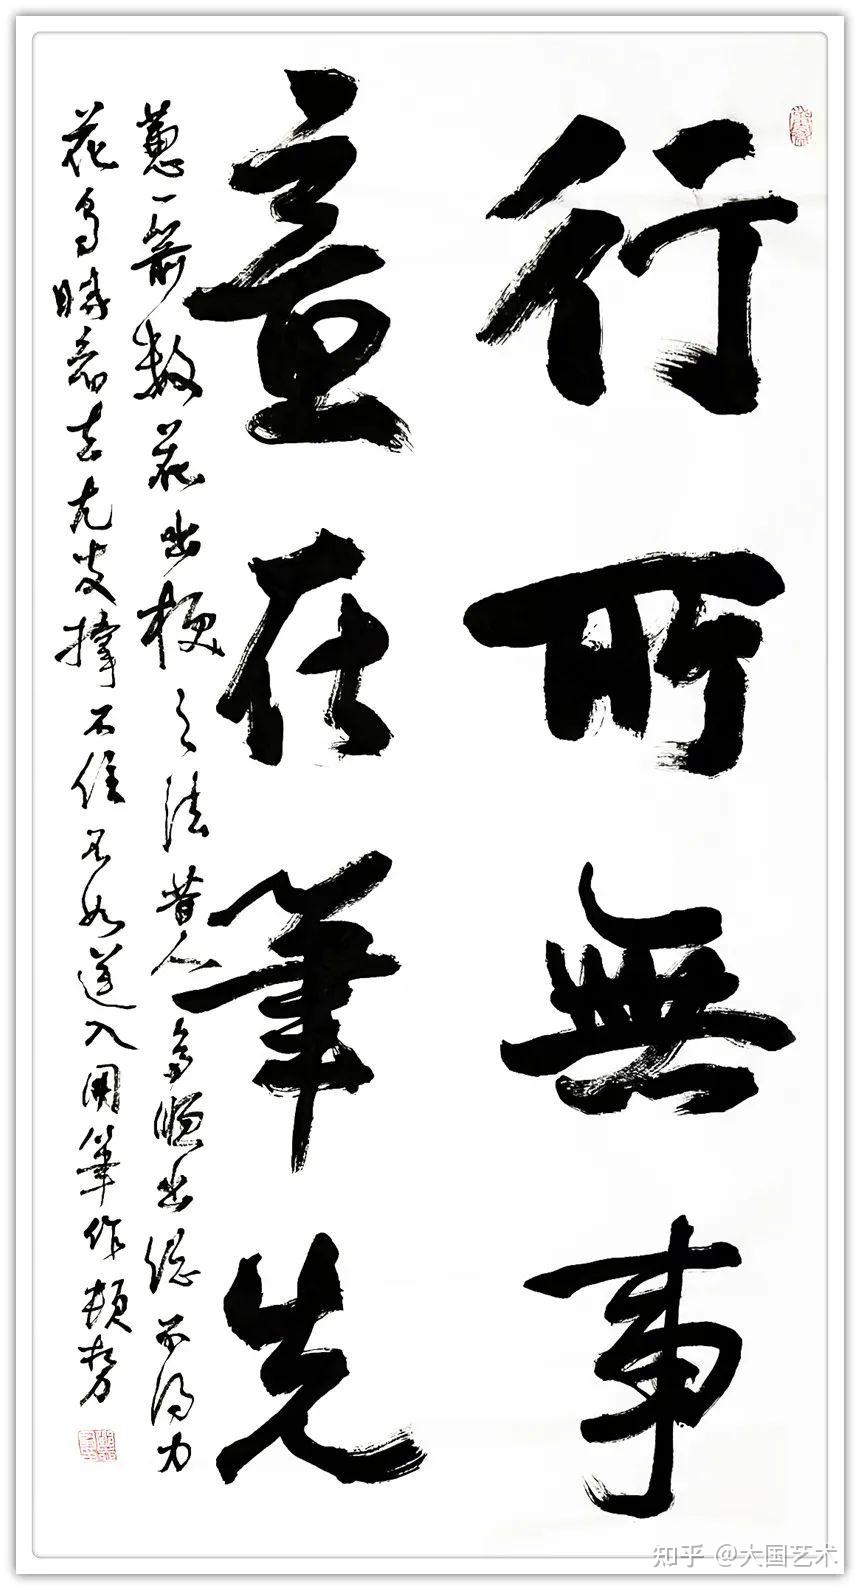 行所無事
意在筆先
蕙一箭数花出梗之法昔人多順出總不得力
花多時意去尤支撑不住不如逆入用筆作頓势
知乎 @大国艺术